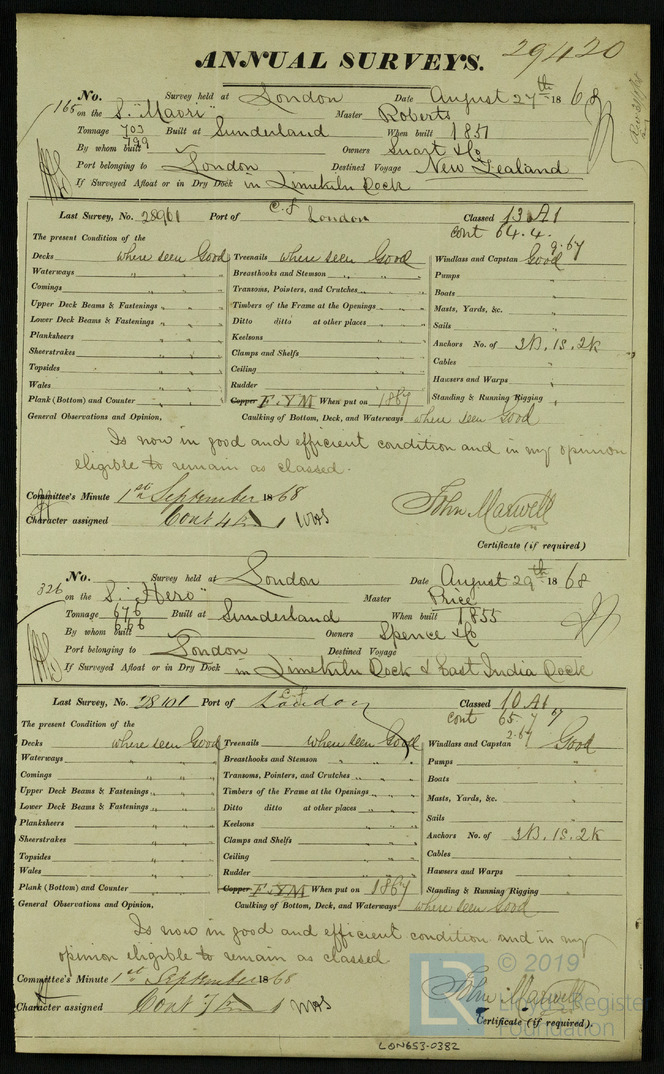 ANNUAL SURVEYS. 29420
No. Survey held at London Date August 27th 1868
165 on the S. "Maori" Master Roberts
Tonnage 703 Built at Sunderland When built 1851
799
By whom built Owners
Port belonging to London Destined Voyage New Zealand
If Surveyed Afloat or in Dry Dock in Limekiln Dock
Last Survey, No. 28961 Port of C.F London Classed 13 A1
cont 64. 4.
9.67
The present Condition of the
Decks where seen Good Treenails where seen Good Windlass and Capstan Good
Waterways " " Breasthooks and Stemson " " Pumps "
Comings " " Transoms, Pointers, and Crutches " " Boats "
Upper Deck Beams & Fastenings " " Timbers of the Frame at the Openings " " Masts, Yards, &c. "
Lower Deck Beams & Fastenings " " Ditto ditto at other places " " Sails "
Planksheers " " Keelsons " " Anchors No. of 3B. 1S. 2K
Sheerstrakes " " Clamps and Shelfs " " Cables "
Topsides " " Ceiling " " Hawsers and Warps "
Wales " " Rudder " " Standing & Running Rigging "
Plank (Bottom) and Counter " " Copper F. YM When put on 1867
General Observations and Opinion, Caulking of Bottom, Deck, and Waterways where seen Good
Is now in good and efficient condition and in my opinion
eligible to remain as classed.
Committee's Minute 1st September 1868
John Maxwell
Character assigned Cont 4
Certificate (if required)
No. Survey held at London Date August 29th 1868
326 on the S. "Hero" Master Price
Tonnage 676 Built at Sunderland When built 1855
By whom built Owners Spence & Co
Port belonging to London Destined Voyage
If Surveyed Afloat or in Dry Dock in Limekiln Dock & East India Dock
Last Survey, No. 28101 Port of C.F London Classed 10 A1
cont 65. 7
2.67
The present Condition of the
Decks where seen Good Treenails where seen Good Windlass and Capstan Good
Waterways " " Breasthooks and Stemson " " Pumps "
Comings " " Transoms, Pointers, and Crutches " " Boats "
Upper Deck Beams & Fastenings " " Timbers of the Frame at the Openings " " Masts, Yards, &c. "
Lower Deck Beams & Fastenings " " Ditto ditto at other places " " Sails "
Planksheers " " Keelsons " " Anchors No. of 3B. 1S. 2K
Sheerstrakes " " Clamps and Shelfs " " Cables "
Topsides " " Ceiling " " Hawsers and Warps "
Wales " " Rudder " " Standing & Running Rigging "
Plank (Bottom) and Counter " " Copper F. YM When put on 1867
General Observations and Opinion, Caulking of Bottom, Deck, and Waterways where seen Good
Is now in good and efficient condition and in my
opinion eligible to remain as classed
Committee's Minute 1st September 1868
John Maxwell
Character assigned Cont 7
Certificate (if required).
LR © 2019 Lloyd's Register Foundation
LON653-0382